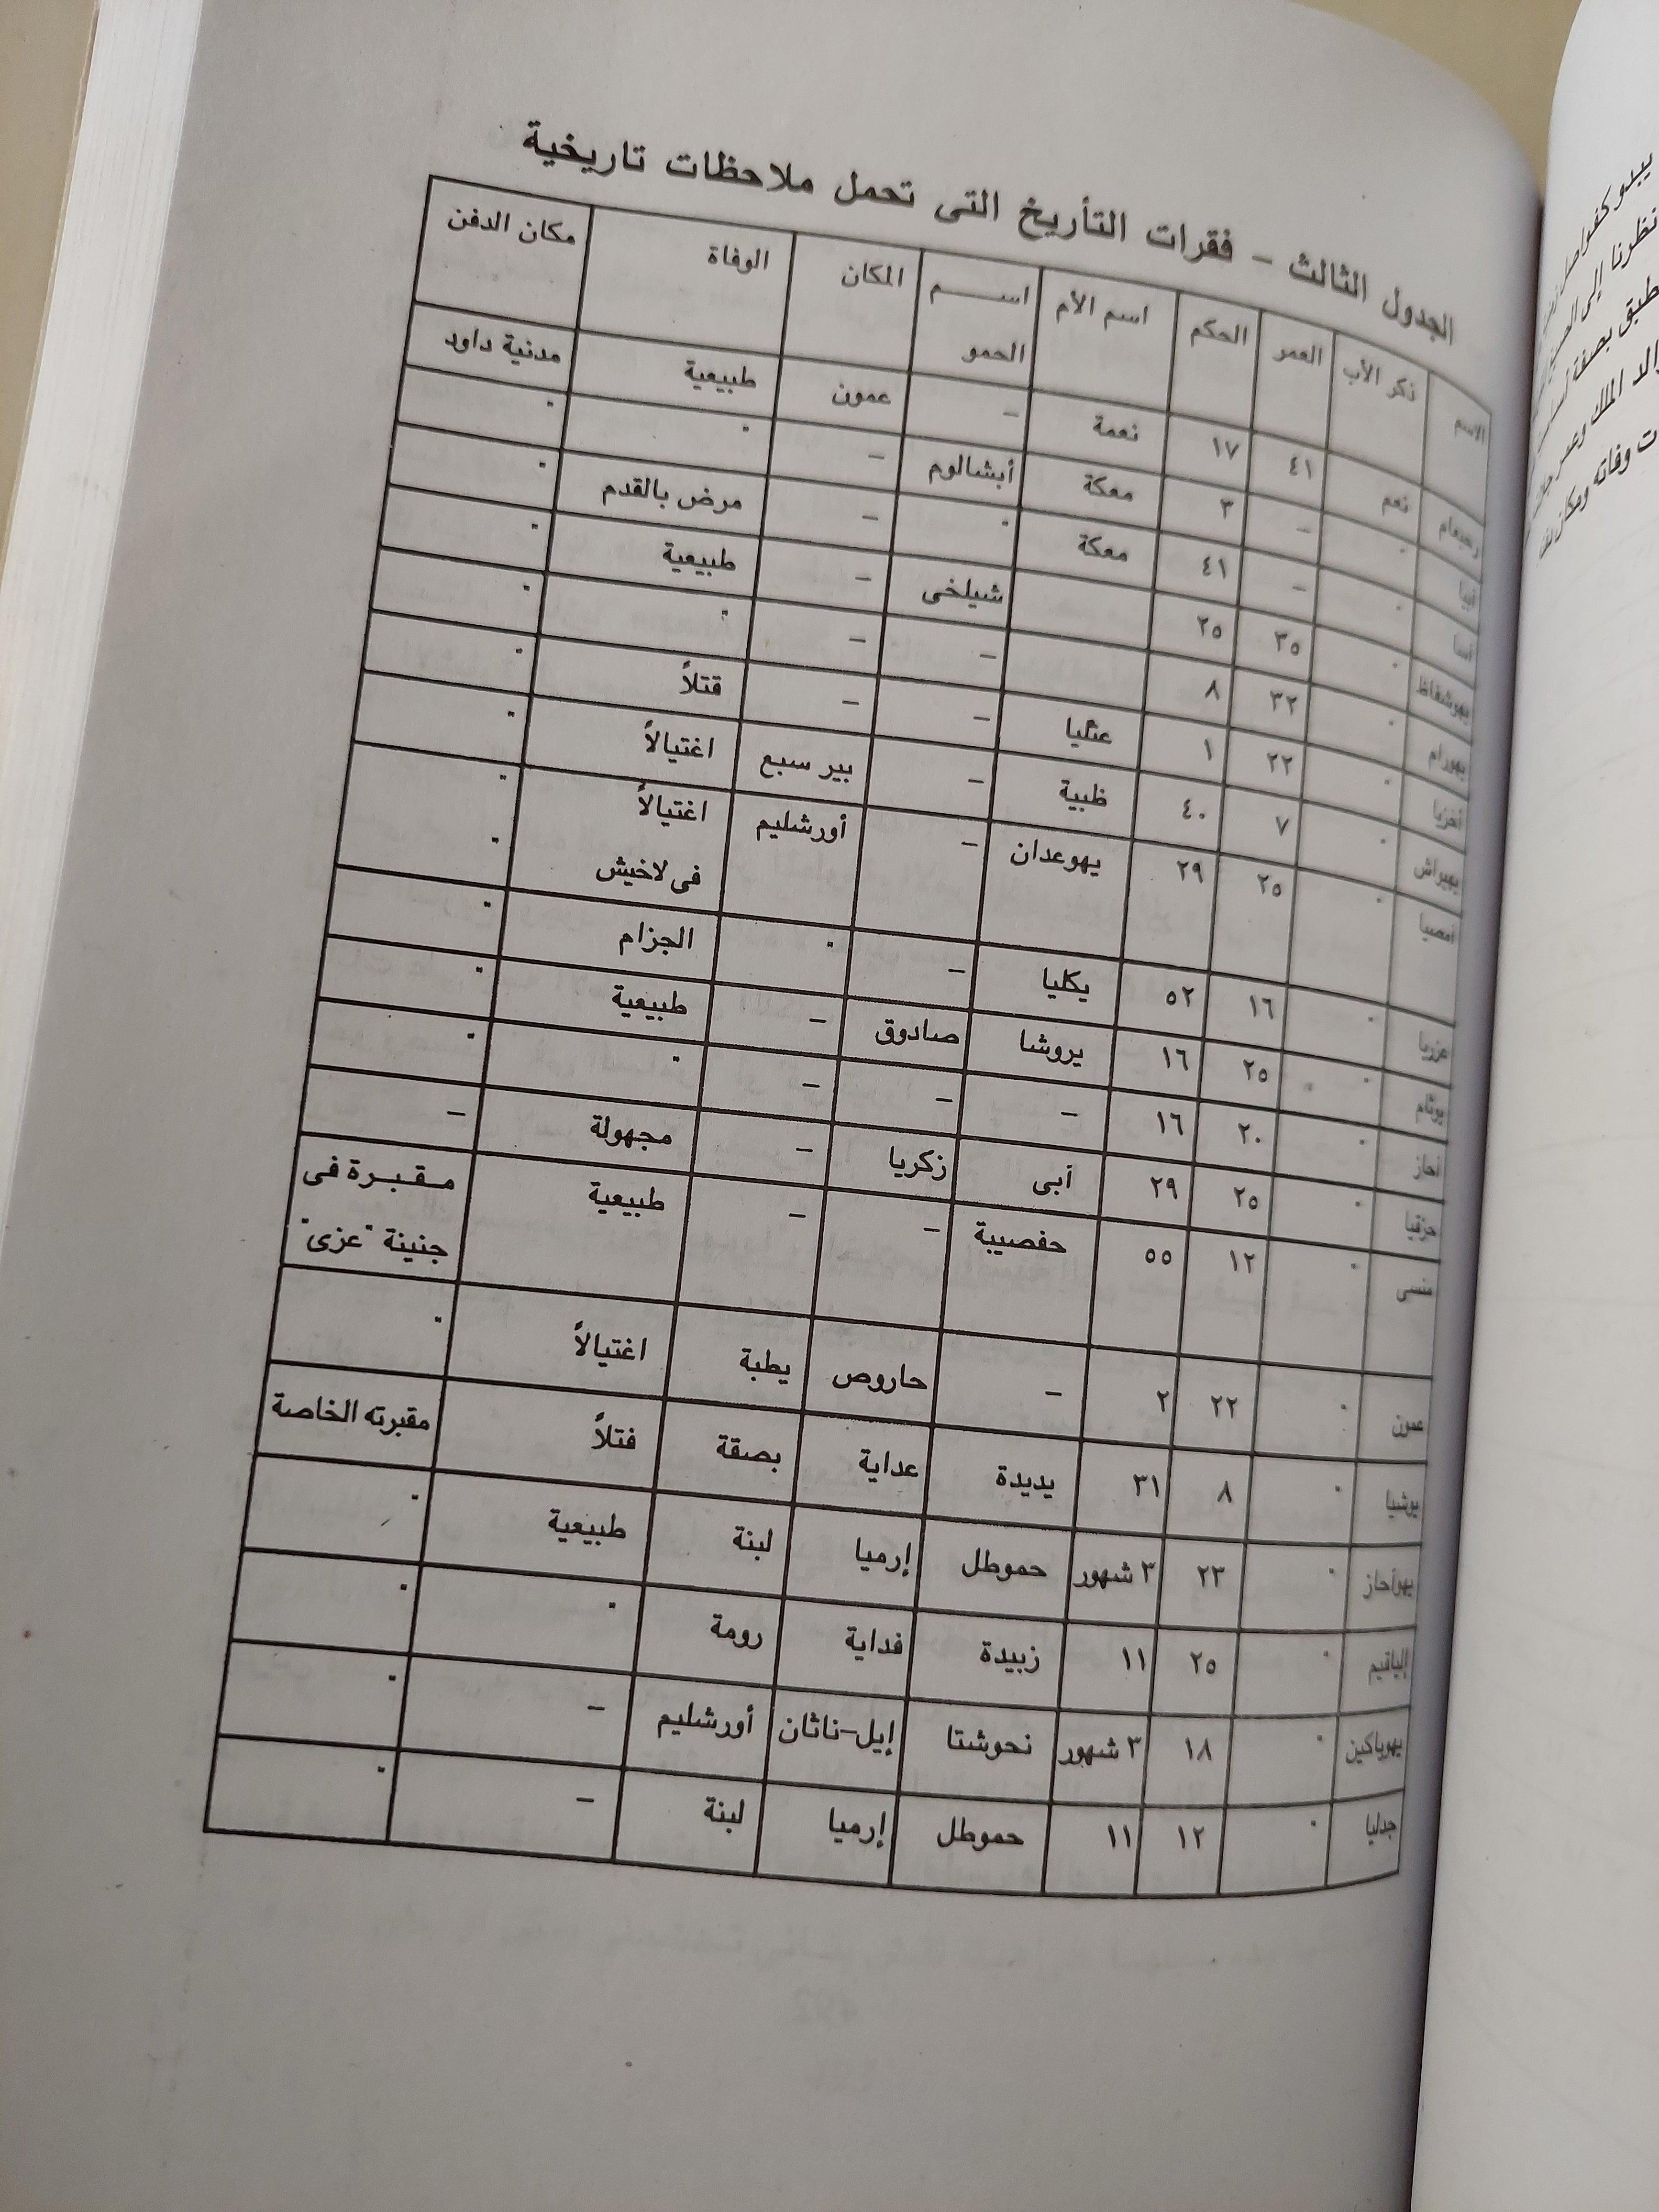 الجدول الثالث – فقرات التأريخ التى تحمل ملاحظات تاريخية
الاسم ذكر الأب العمر الحكم اسم الأم اســـم الحمو المكان الوفاة مكان الدفن
رحبعام نعم ٤١ ١٧ نعمة – عمون طبيعية مدنية داود
أبيا " – ٣ معكة أبشالوم – " "
آسا " – ٤١ معكة " – مرض بالقدم "
يهوشفاظ " ٣٥ ٢٥ شيلخى – طبيعية "
يهورام " ٣٢ ٨ – – " "
أخزيا " ٢٢ ١ عثليا – – قتلاً "
يهواش " ٧ ٤٠ ظبية – بير سبع اغتيالاً "
أمصيا " ٢٥ ٢٩ يهوعدان – أورشليم اغتيالاً "
فى لاخيش "
عزريا " ١٦ ٥٢ يكليا – " الجزام "
يوثام " ٢٥ ١٦ يروشا صادوق – طبيعية "
أحاز " ٢٠ ١٦ – – – " "
حزقيا " ٢٥ ٢٩ أبى زكريا – مجهولة –
منسى " ١٢ ٥٥ حفصيبة – – طبيعية مـقـبـرة فى
جنينة "عزى"
عمون " ٢٢ ٢ – حاروص يطبة اغتيالاً "
يوشيا " ٨ ٣١ يديدة عداية بصقة فتلاً مقبرته الخاصة
يهوآحاز " ٢٣ ٣ شهور حموطل إرميا لبنة طبيعية "
إلياقيم " ٢٥ ١١ زبيدة فداية رومة " "
يهوياكين " ١٨ ٣ شهور نحوشتا إيل–ناثان أورشليم – "
جدليا " ١٢ ١١ حموطل إرميا لبنة – "
يبدو كفواصل
نظرنا إلى
طبق بصفة
والد الملك وعمر
ت وفاته ومكان